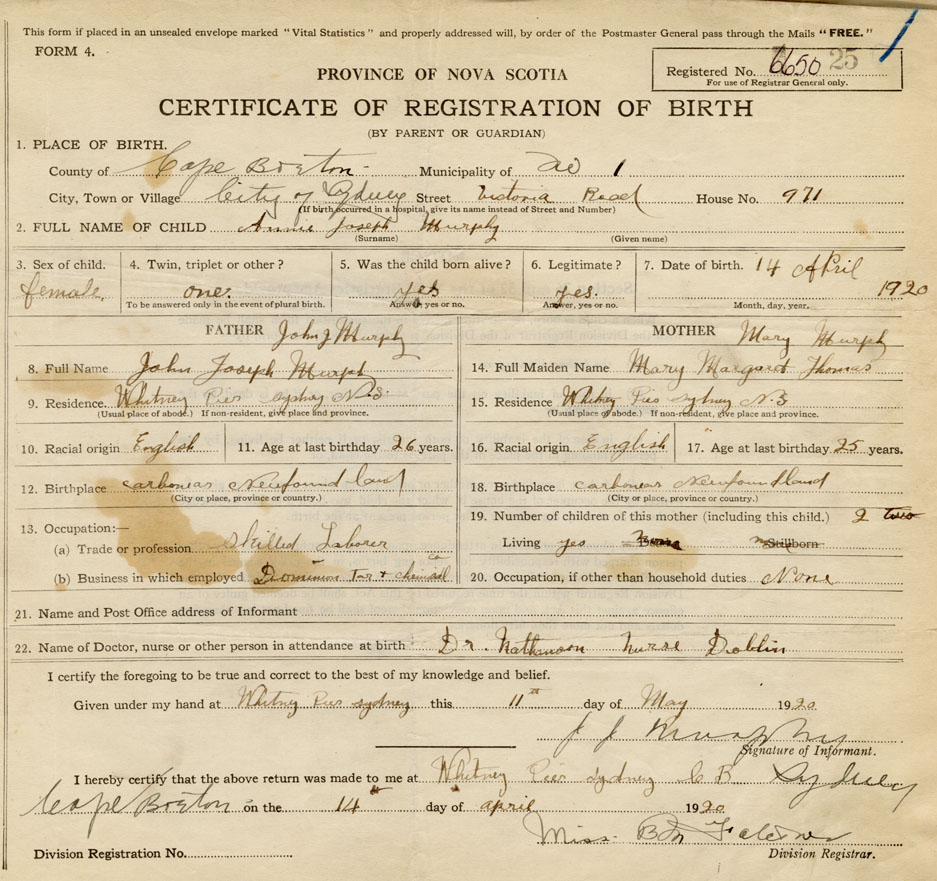 This form if placed in an unsealed envelope marked "Vital Statistics" and properly addressed will, by order of the Postmaster General pass through the Mails "FREE."
FORM 4.
PROVINCE OF NOVA SCOTIA
Registered No. 6650 25
For use of Registrar General only.
CERTIFICATE OF REGISTRATION OF BIRTH
(BY PARENT OR GUARDIAN)
1. PLACE OF BIRTH.
County of Cape Breton Municipality of
City, Town or Village City of Sydney Street Victoria Road House No. 971
(If birth occurred in a hospital, give its name instead of Street and Number)
2. FULL NAME OF CHILD Annie Joseph Murphy
(Surname) (Given name)
3. Sex of child. 4. Twin, triplet or other? 5. Was the child born alive? 6. Legitimate? 7. Date of birth. 14 April
female. one. yes yes. 1920
To be answered only in the event of plural birth. Answer yes or no. Answer, yes or no. Month, day, year.
FATHER John J Murphy MOTHER Mary Murphy
8. Full Name John Joseph Murphy 14. Full Maiden Name Mary Margaret Thomas
9. Residence Whitney Pier Sydney N.S. 15. Residence Whitney Pier Sydney N.S
(Usual place of abode.) If non-resident, give place and province. (Usual place of abode.) If non-resident, give place and province.
10. Racial origin English 11. Age at last birthday 26 years. 16. Racial origin English 17. Age at last birthday 25 years.
12. Birthplace carbonear Newfoundland 18. Birthplace carbonear Newfoundland
(City or place, province or country.) (City or place, province or country.)
13. Occupation:— 19. Number of children of this mother (including this child.) 2 two
(a) Trade or profession skilled Laborer Living yes Stillborn
(b) Business in which employed Dominion Tar & chemical co 20. Occupation, if other than household duties None
21. Name and Post Office address of Informant
22. Name of Doctor, nurse or other person in attendance at birth Dr. Nathanson Nurse Doblin
I certify the foregoing to be true and correct to the best of my knowledge and belief.
Given under my hand at Whitney Pier sydney this 11th day of May 1920
J J Murphy
Signature of Informant.
I hereby certify that the above return was made to me at Whitney Pier Sydney C B Sydney
Cape Breton on the 14th day of april 1920
Miss
Division Registration No. Division Registrar.